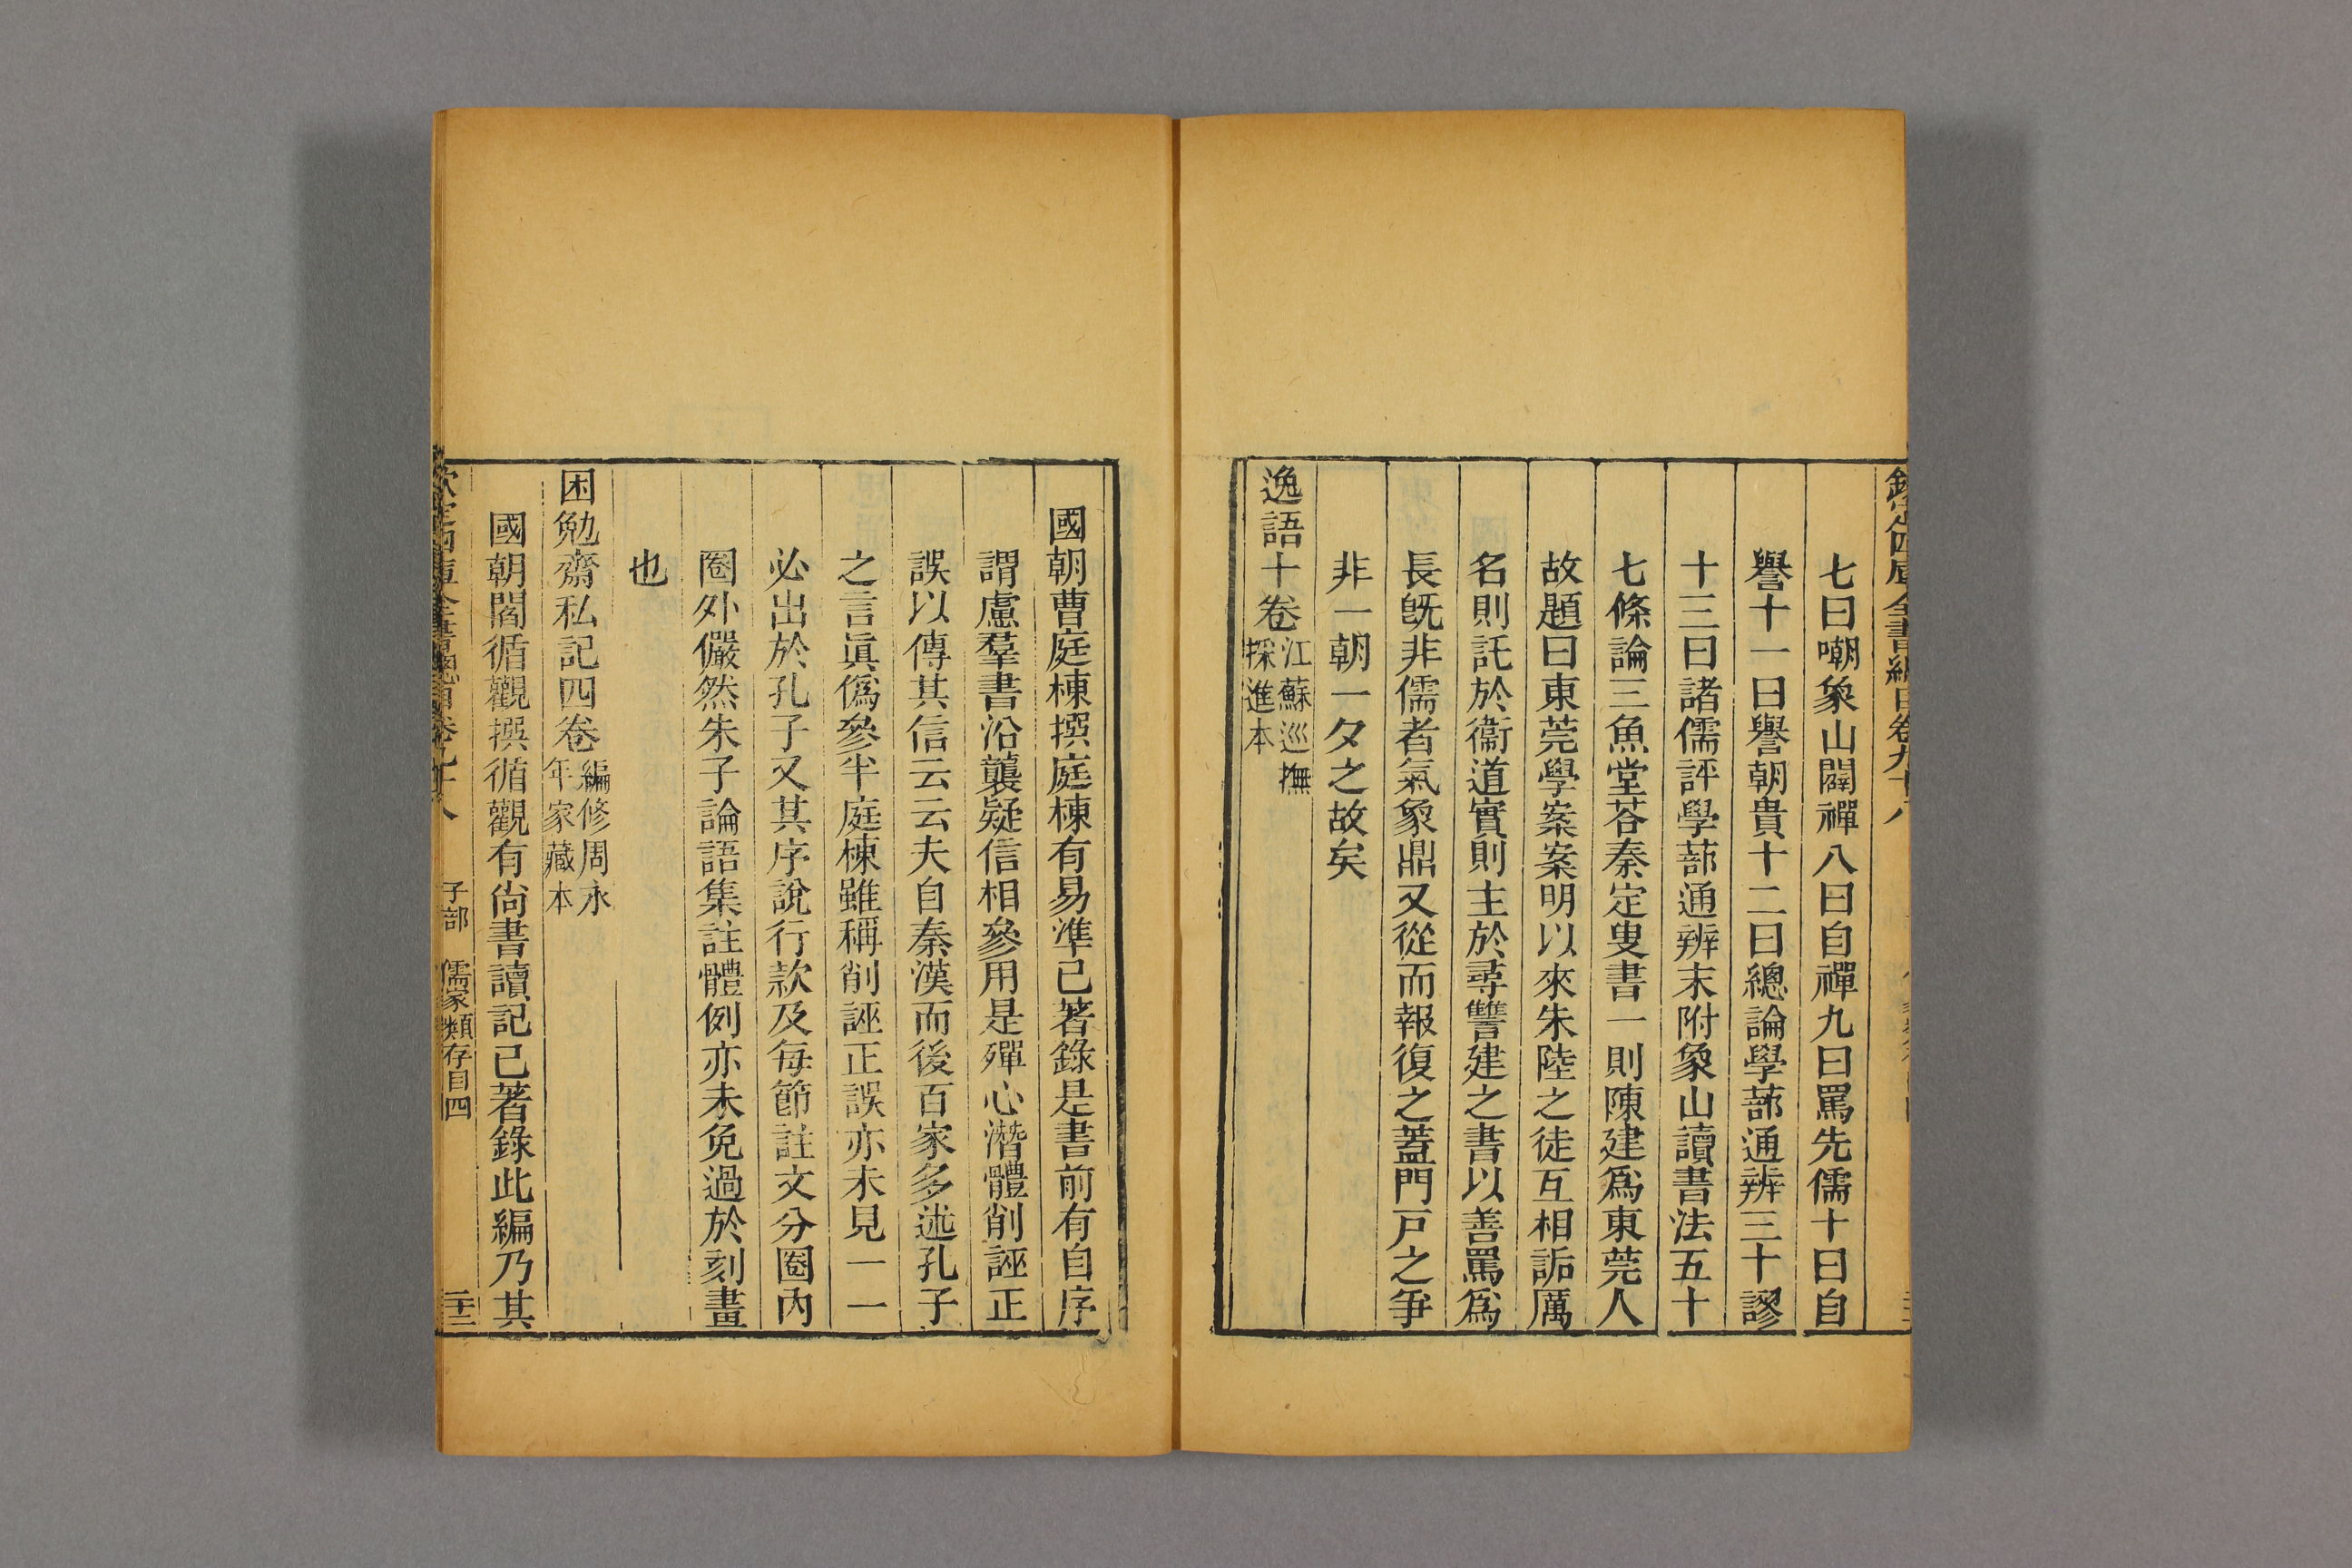 欽定四庫全書總目卷九十八
七曰嘲象山闢禪八曰自禪九曰罵先儒十曰自
譽十一曰譽朝貴十二曰總論學蔀通辨三十謬
十三曰諸儒評學蔀通辨末附象山讀書法五十
七條論三魚堂荅秦定叟書一則陳建爲東莞人
故題曰東莞學案案明以來朱陸之徒互相詬厲
名則託於衞道實則主於尋讐建之書以善罵爲
長旣非儒者氣象鼎又從而報復之蓋門戸之爭
非一朝一夕之故矣
逸語十卷江蘇巡撫
採進本
國朝曹庭棟撰庭棟有易準已著錄是書前有自序
謂慮羣書沿襲疑信相參用是殫心潛體削誣正
誤以傳其信云云夫自秦漢而後百家多述孔子
之言眞僞參半庭棟雖稱削誣正誤亦未見一一
必出於孔子又其序說行款及每節註文分圈內
圈外儼然朱子論語集註體例亦未免過於刻畫
也
困勉齋私記四卷編修周永
年家藏本
國朝閻循觀撰循觀有尙書讀記已著錄此編乃其
欽定四庫全書總目卷九十八 子部 儒家類存目四 二十三